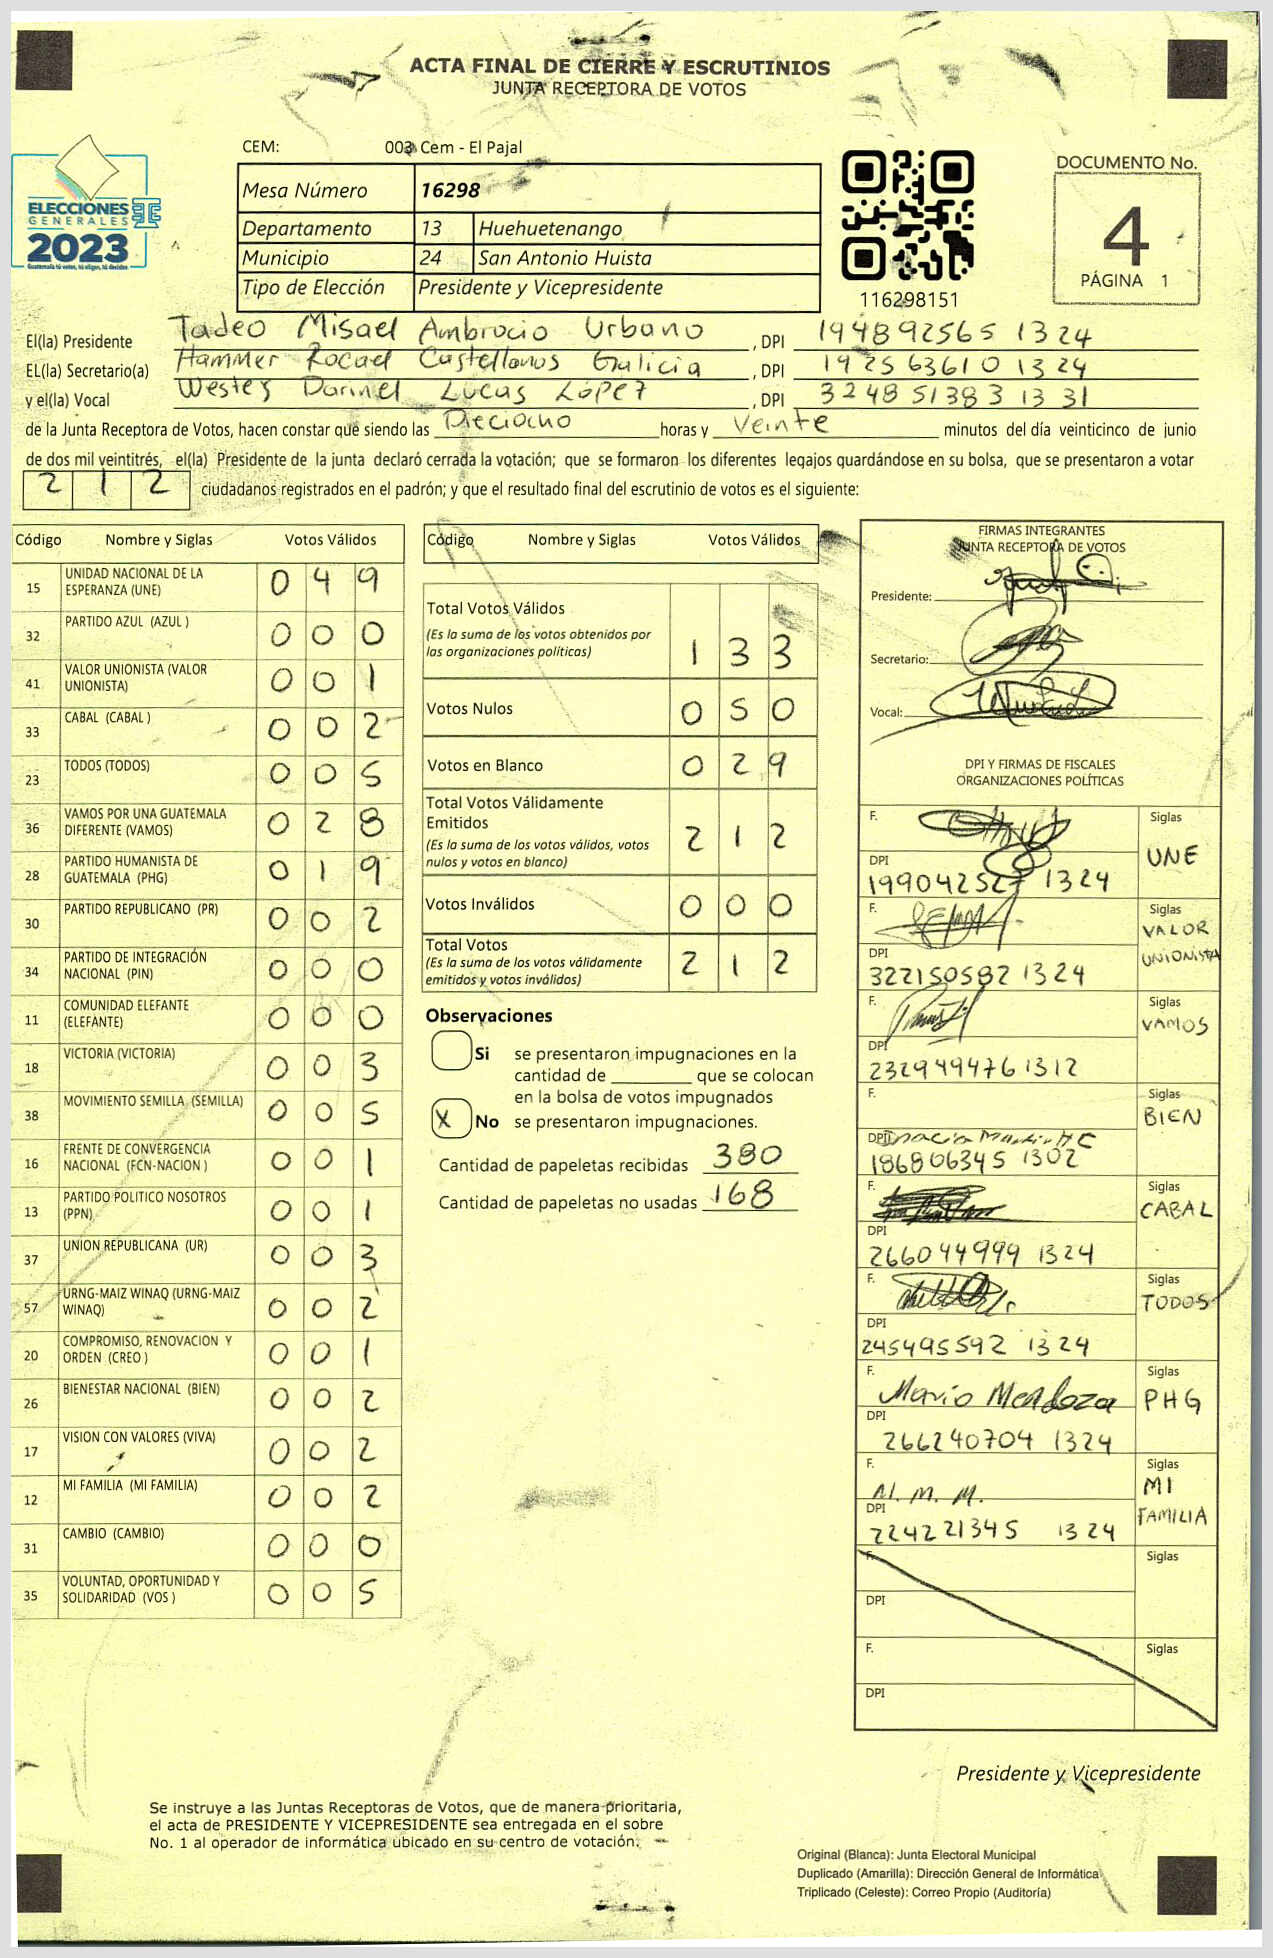 ACTA FINAL DE CIERRE Y ESCRUTINIOS
JUNTA RECEPTORA DE VOTOS
CEM: 003 Cem - El Pajal
Mesa Número 16298
Departamento 13 Huehuetenango
Municipio 24 San Antonio Huista
Tipo de Elección Presidente y Vicepresidente
ELECCIONES
GENERALES
2023
Guatemala tú votas, tú eliges, tú decides
116298151
DOCUMENTO No.
4
PÁGINA 1
El(la) Presidente Tadeo Misael Ambrocio Urbano, DPI 194892565 1324
EL(la) Secretario(a) Hammer Rocael Castellanos Galicia, DPI 192563610 1324
y el(la) Vocal Wester Darinel Lucas López, DPI 324851383 1331
de la Junta Receptora de Votos, hacen constar que siendo las Dieciocho horas y Veinte minutos del día veinticinco de junio
de dos mil veintitrés, el(la) Presidente de la junta declaró cerrada la votación; que se formaron los diferentes legajos guardándose en su bolsa, que se presentaron a votar
212 ciudadanos registrados en el padrón; y que el resultado final del escrutinio de votos es el siguiente:
Código Nombre y Siglas Votos Válidos
15 UNIDAD NACIONAL DE LA ESPERANZA (UNE) 049
32 PARTIDO AZUL (AZUL ) 000
41 VALOR UNIONISTA (VALOR UNIONISTA) 001
33 CABAL (CABAL ) 002
23 TODOS (TODOS) 005
36 VAMOS POR UNA GUATEMALA DIFERENTE (VAMOS) 028
28 PARTIDO HUMANISTA DE GUATEMALA (PHG) 019
30 PARTIDO REPUBLICANO (PR) 002
34 PARTIDO DE INTEGRACIÓN NACIONAL (PIN) 000
11 COMUNIDAD ELEFANTE (ELEFANTE) 000
18 VICTORIA (VICTORIA) 003
38 MOVIMIENTO SEMILLA (SEMILLA) 005
16 FRENTE DE CONVERGENCIA NACIONAL (FCN-NACION ) 001
13 PARTIDO POLITICO NOSOTROS (PPN) 001
37 UNION REPUBLICANA (UR) 003
57 URNG-MAIZ WINAQ (URNG-MAIZ WINAQ) 002
20 COMPROMISO, RENOVACION Y ORDEN (CREO ) 001
26 BIENESTAR NACIONAL (BIEN) 002
17 VISION CON VALORES (VIVA) 002
12 MI FAMILIA (MI FAMILIA) 002
31 CAMBIO (CAMBIO) 000
35 VOLUNTAD, OPORTUNIDAD Y SOLIDARIDAD (VOS ) 005
Código Nombre y Siglas Votos Válidos
Total Votos Válidos
(Es la suma de los votos obtenidos por
las organizaciones políticas) 133
Votos Nulos 050
Votos en Blanco 029
Total Votos Válidamente
Emitidos
(Es la suma de los votos válidos, votos
nulos y votos en blanco) 212
Votos Inválidos 000
Total Votos
(Es la suma de los votos válidamente
emitidos y votos inválidos) 212
Observaciones
Si se presentaron impugnaciones en la
cantidad de que se colocan
en la bolsa de votos impugnados
X No se presentaron impugnaciones.
Cantidad de papeletas recibidas 380
Cantidad de papeletas no usadas 168
FIRMAS INTEGRANTES
JUNTA RECEPTORA DE VOTOS
Presidente:
Secretario:
Vocal:
DPI Y FIRMAS DE FISCALES
ORGANIZACIONES POLÍTICAS
F. Siglas
UNE
DPI
199042527 1324
F. Siglas
VALOR
UNIONISTA
DPI
322150582 1324
F. Siglas
VAMOS
DPI
232949476 1312
F. Siglas
BIEN
DPI
186806345 1302
F. Siglas
CABAL
DPI
266044999 1324
F. Siglas
TODOS
DPI
245495592 1324
F. Siglas
Mario Mendoza PHG
DPI
266240704 1324
F. Siglas
N. M. M. MI
FAMILIA
DPI
224221345 1324
F. Siglas
DPI
F. Siglas
DPI
Presidente y Vicepresidente
Se instruye a las Juntas Receptoras de Votos, que de manera prioritaria,
el acta de PRESIDENTE Y VICEPRESIDENTE sea entregada en el sobre
No. 1 al operador de informática ubicado en su centro de votación.
Original (Blanca): Junta Electoral Municipal
Duplicado (Amarilla): Dirección General de Informática
Triplicado (Celeste): Correo Propio (Auditoría)